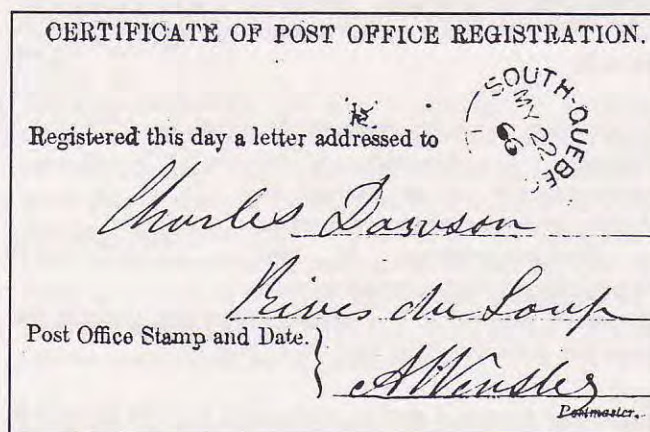 CERTIFICATE OF POST OFFICE REGISTRATION.
SOUTH-QUEBE
MY 22
66
Registered this day a letter addressed to
Charles Dawson
River du Loup
Post Office Stamp and Date.
Postmaster.